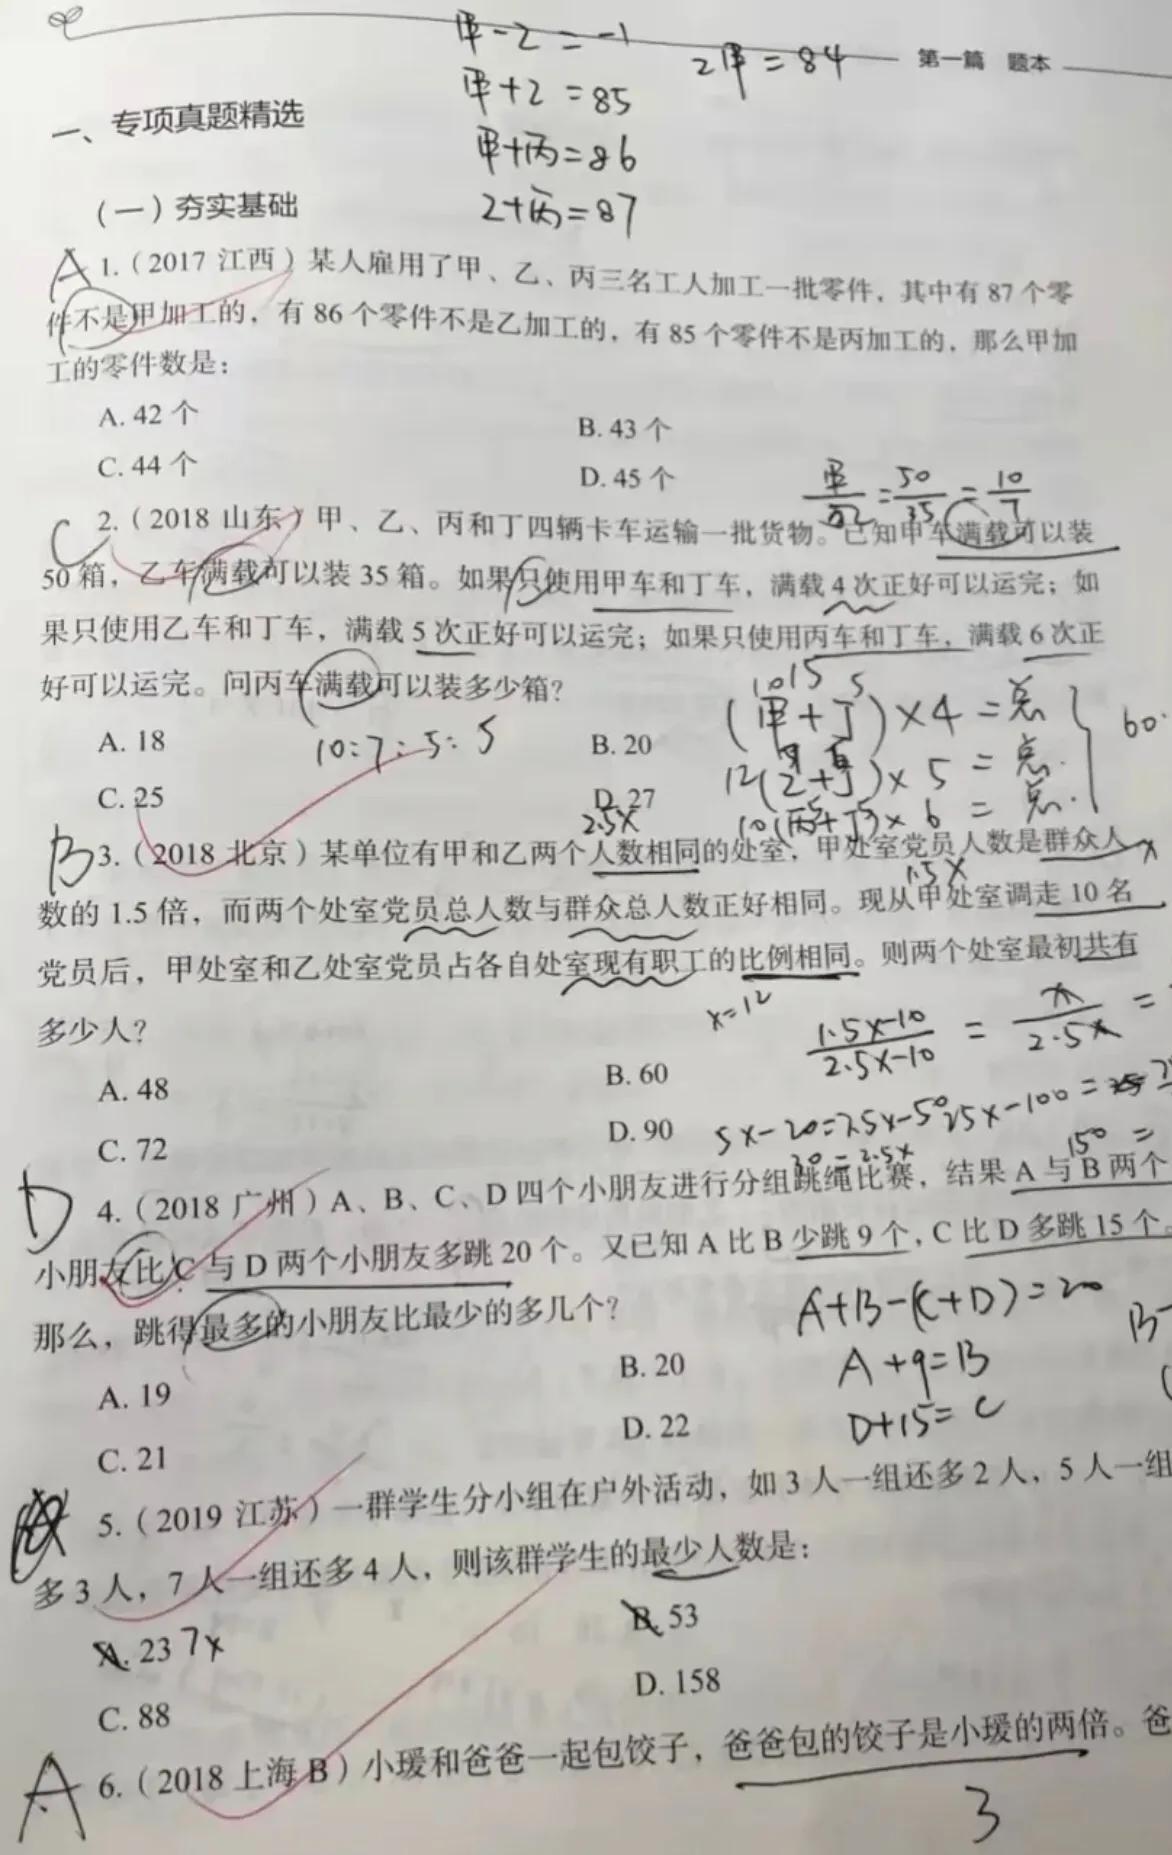 甲-乙=-1
2甲=84
第一篇 题本
甲+乙=85
一、专项真题精选
甲+丙=86
（一）夯实基础
乙+丙=87
A
1.（2017 江西）某人雇用了甲、乙、丙三名工人加工一批零件，其中有 87 个零
件不是甲加工的，有 86 个零件不是乙加工的，有 85 个零件不是丙加工的，那么甲加
工的零件数是：
A. 42 个
B. 43 个
C. 44 个
D. 45 个
甲/乙=50/35=10/7
C
2.（2018 山东）甲、乙、丙和丁四辆卡车运输一批货物。已知甲车满载可以装
50 箱，乙车满载可以装 35 箱。如果只使用甲车和丁车，满载 4 次正好可以运完；如
果只使用乙车和丁车，满载 5 次正好可以运完；如果只使用丙车和丁车，满载 6 次正
好可以运完。问丙车满载可以装多少箱？
10 15 5
(甲+丁)×4=总
60
A. 18
10:7:5:5
B. 20
12(乙+丁)×5=总
C. 25
D. 27
10(丙+丁)×6=总
2.5x
B
3.（2018 北京）某单位有甲和乙两个人数相同的处室，甲处室党员人数是群众人
x
1.5x
数的 1.5 倍，而两个处室党员总人数与群众总人数正好相同。现从甲处室调走 10 名
党员后，甲处室和乙处室党员占各自处室现有职工的比例相同。则两个处室最初共有
多少人？
x=12
1.5x-10/2.5x-10=x/2.5x=
A. 48
B. 60
C. 72
D. 90
5x-20=7.5x-50
25x-100=
30=2.5x
150=
D
4.（2018 广州）A、B、C、D 四个小朋友进行分组跳绳比赛，结果 A 与 B 两个
小朋友比 C 与 D 两个小朋友多跳 20 个。又已知 A 比 B 少跳 9 个，C 比 D 多跳 15 个。
那么，跳得最多的小朋友比最少的多几个？
A+B-(C+D)=20
B-
A. 19
B. 20
A+9=B
C. 21
D. 22
D+15=C
5.（2019 江苏）一群学生分小组在户外活动，如 3 人一组还多 2 人，5 人一组
多 3 人，7 人一组还多 4 人，则该群学生的最少人数是：
A. 23 7x
B. 53
C. 88
D. 158
A
6.（2018 上海 B）小瑗和爸爸一起包饺子，爸爸包的饺子是小瑗的两倍。爸
3